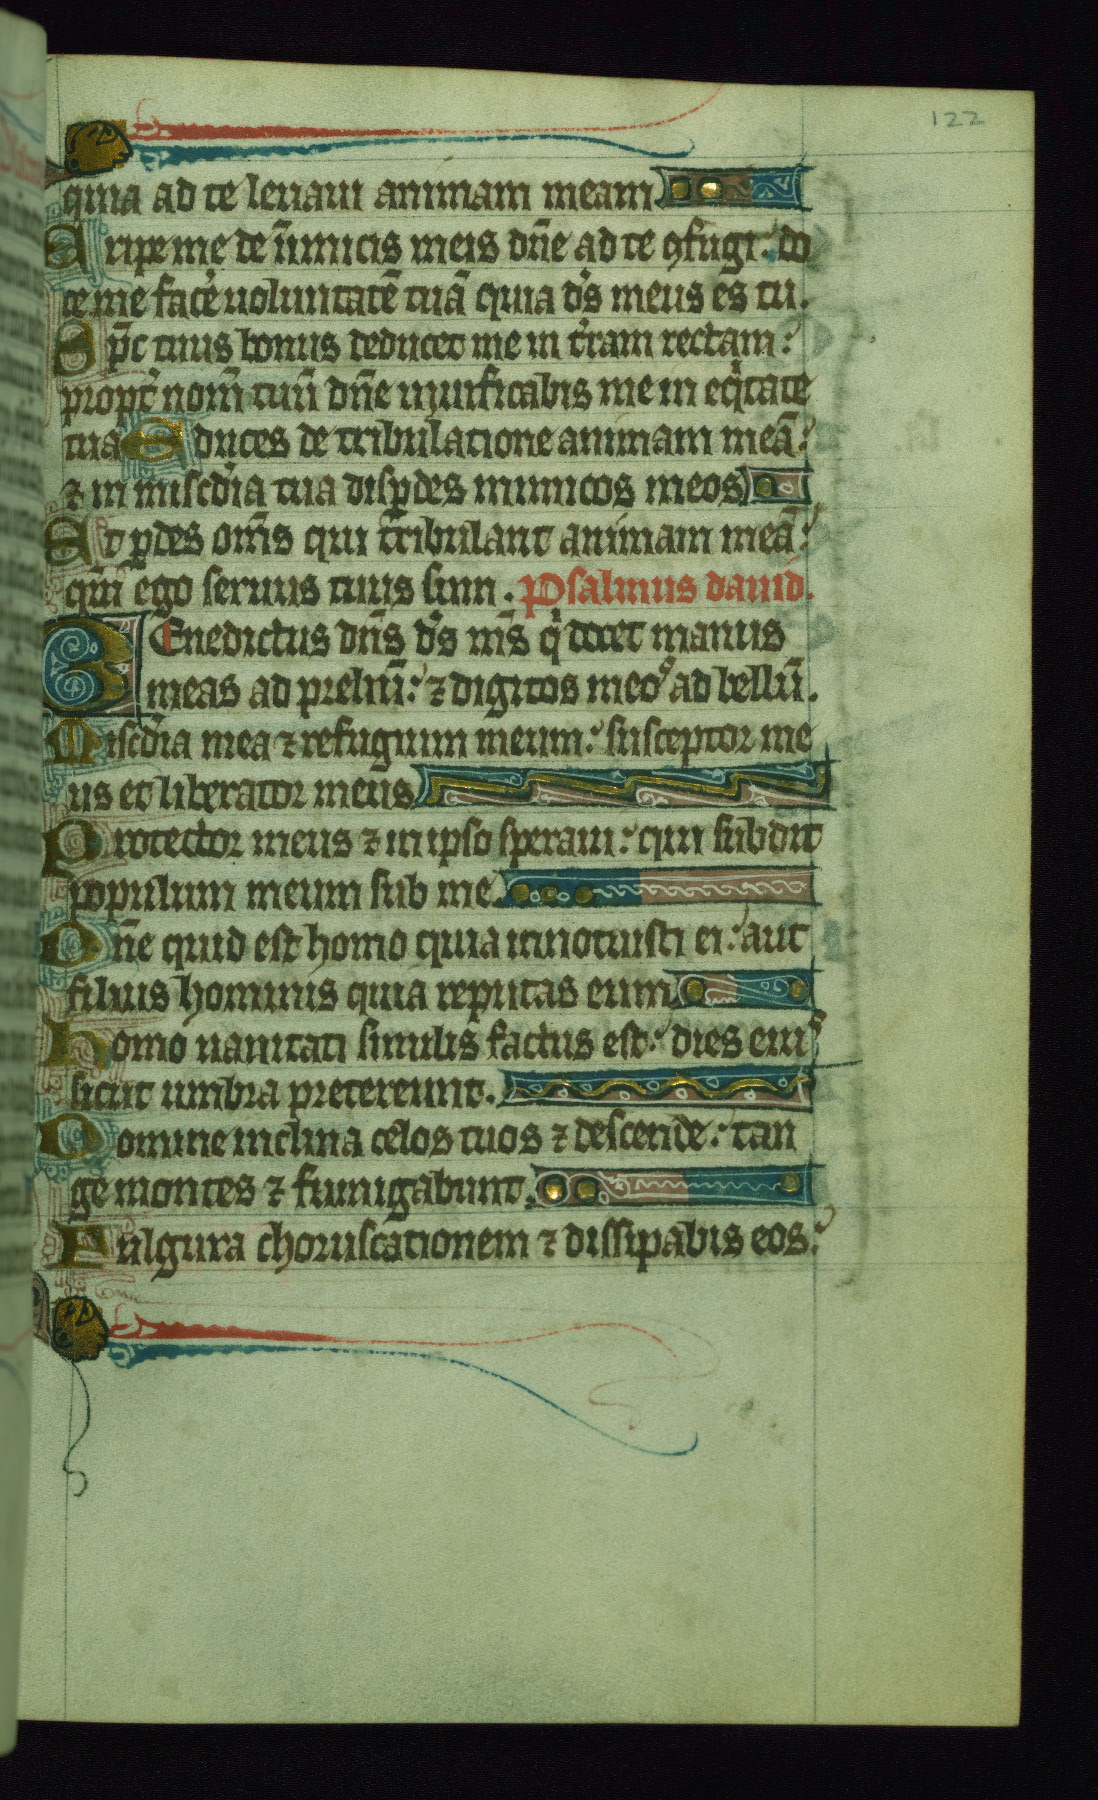 122
quia ad te leuaui animam meam
Eripe me de inimicis meis dn̄e ad te ꝯfugi: do
ce me facẽ uoluntatē tuā quia ds̄ meus es tu.
Sp̄c tuus bonus deducet me in t̃ram rectam:
propt̃ nom̄ tuū dn̄e uiuificabis me in eqͥtate
tua Educes de tribulatione animam meā:
⁊ in misc̄dia tua disꝑdes inimicos meos
Et ꝑdes om̄s qui tribulant animam meā:
qm̄ ego seruus tuus sum. Psalmus dauid.
Benedictus dn̄s ds̄ ms̄ qͥ docet manus
meas ad preliū: ⁊ digitos meoˢ ad bellū.
Misc̄dia mea ⁊ refugium meum: susceptor me
us et liberator meus
Protector meus ⁊ in ipso speraui: qui subdit
populum meum sub me.
Dn̄e quid est homo quia innotuisti ei: aut
filius hominis quia reputas eum
Homo uanitati similis factus est: dies eiuˢ
sicut umbra pretereunt.
Domine inclina celos tuos ⁊ descende: tan
ge montes ⁊ fumigabunt.
Fulgura choruscationem ⁊ dissipabis eos: